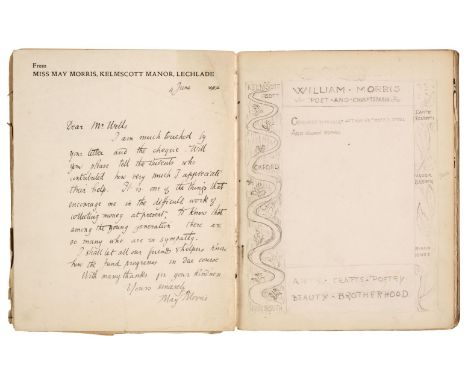 From
MISS MAY MORRIS, KELMSCOTT MANOR, LECHLADE
4 June
Dear Mr Wells
I am much touched by
your letter and the cheque. Will
you please tell the students who
contributed how very much I appreciate
their help. It is one of the things that
encourage me in the difficult work of
collecting money at present, to know that
among the young generation there are
so many who are in sympathy.
I shall let all our friends & helpers know
how the fund progresses in due course
With many thanks for your kindness
Yours sincerely
May Morris
KELMSCOTT
WILLIAM - MORRIS
POET - AND - CRAFTSMAN
OXFORD
DANTE
ROSSETTI
MADOX
BROWN
BURNE
JONES
CRAFTS - POETRY
BEAUTY - BROTHERHOOD